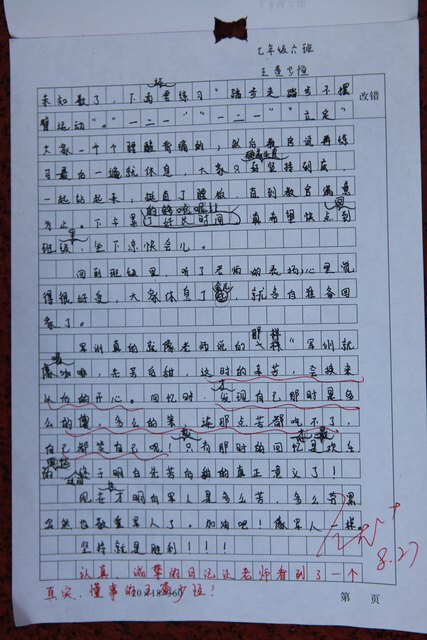 七年级六班
王
改错
未知数了，下面要练习"踏步走 踏步不摆
臂运动"。"一二一" "一二一" "立定"
大家一个个腰酸背痛的，教官说再练
习最后一遍就休息，大家只好坚持到底
一起站起来，挺直了腰板 直到教官满意
为止。下午累了好长时间，真希望快点到
班级，坐下凉快会儿。
回到班级里，听了老师的表扬心里觉
得很好受，大家休息了 ，就各自准备回
家了。
军训真的就像老师说的那样"军训就
像咖啡，先苦后甜，这时的辛苦，会换来
以后的开心。回忆时，发现自己那时是多
么的傻，多么的笨，连那点苦都吃不了，
自己都笑自己呢！只有那时的回忆是欢乐
的 终于明白先苦后甜的真正意义了！
现在才明白军人是多么苦，多么劳累
当然教官军人了。加油吧！像军人一样。
坚持就是胜利！！！
8.27
认真、诚挚的日记让老师看到了一个
真实、懂事的王
第 页